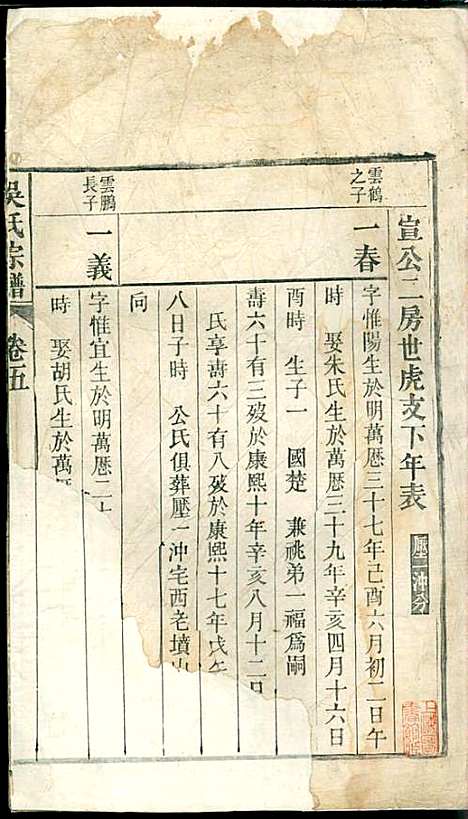 宣公二房世虎支下年表
壓一沖分
雲鶴之子
一春
字惟陽生於明萬曆三十七年己酉六月初二日午
時 娶朱氏生於萬曆三十九年辛亥四月十六日
酉時 生子一 國楚 兼祧弟一福爲嗣
壽六十有三歿於康熙十年辛亥八月十二日
氏享壽六十有八歿於康熙十七年戊午
八日子時 公氏俱葬壓一沖宅西老墳山
向
雲鵬長子
一義
字惟宜生於明萬曆二十
時 娶胡氏生於萬曆
吳氏宗譜 卷五